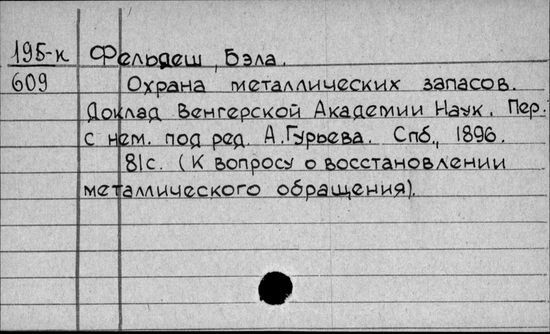 195-к Фельдеш, Бэла.
609 Охрана металлических запасов.
Доклад Венгерской Академии Наук. Пер.
с нем. под ред. А.Гурьева. Спб., 1896.
81с. (К вопросу о восстановлении
металлического обращения).